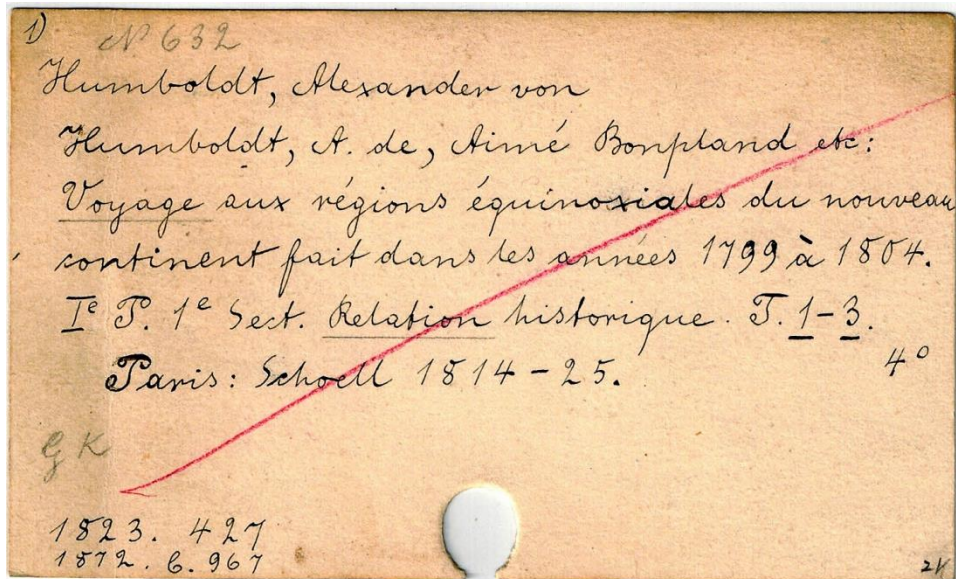 1)
N° 632
Humboldt, Alexander von
Humboldt, A. de, Aimé Bonpland etc:
Voyage aux régions équinoxiales du nouveau
continent fait dans les années 1799 à 1804.
Ie P. 1e Sect. Relation historique. T. 1-3.
Paris: Schoell 1814-25. 4°
GK
1823. 427
1872. C. 967